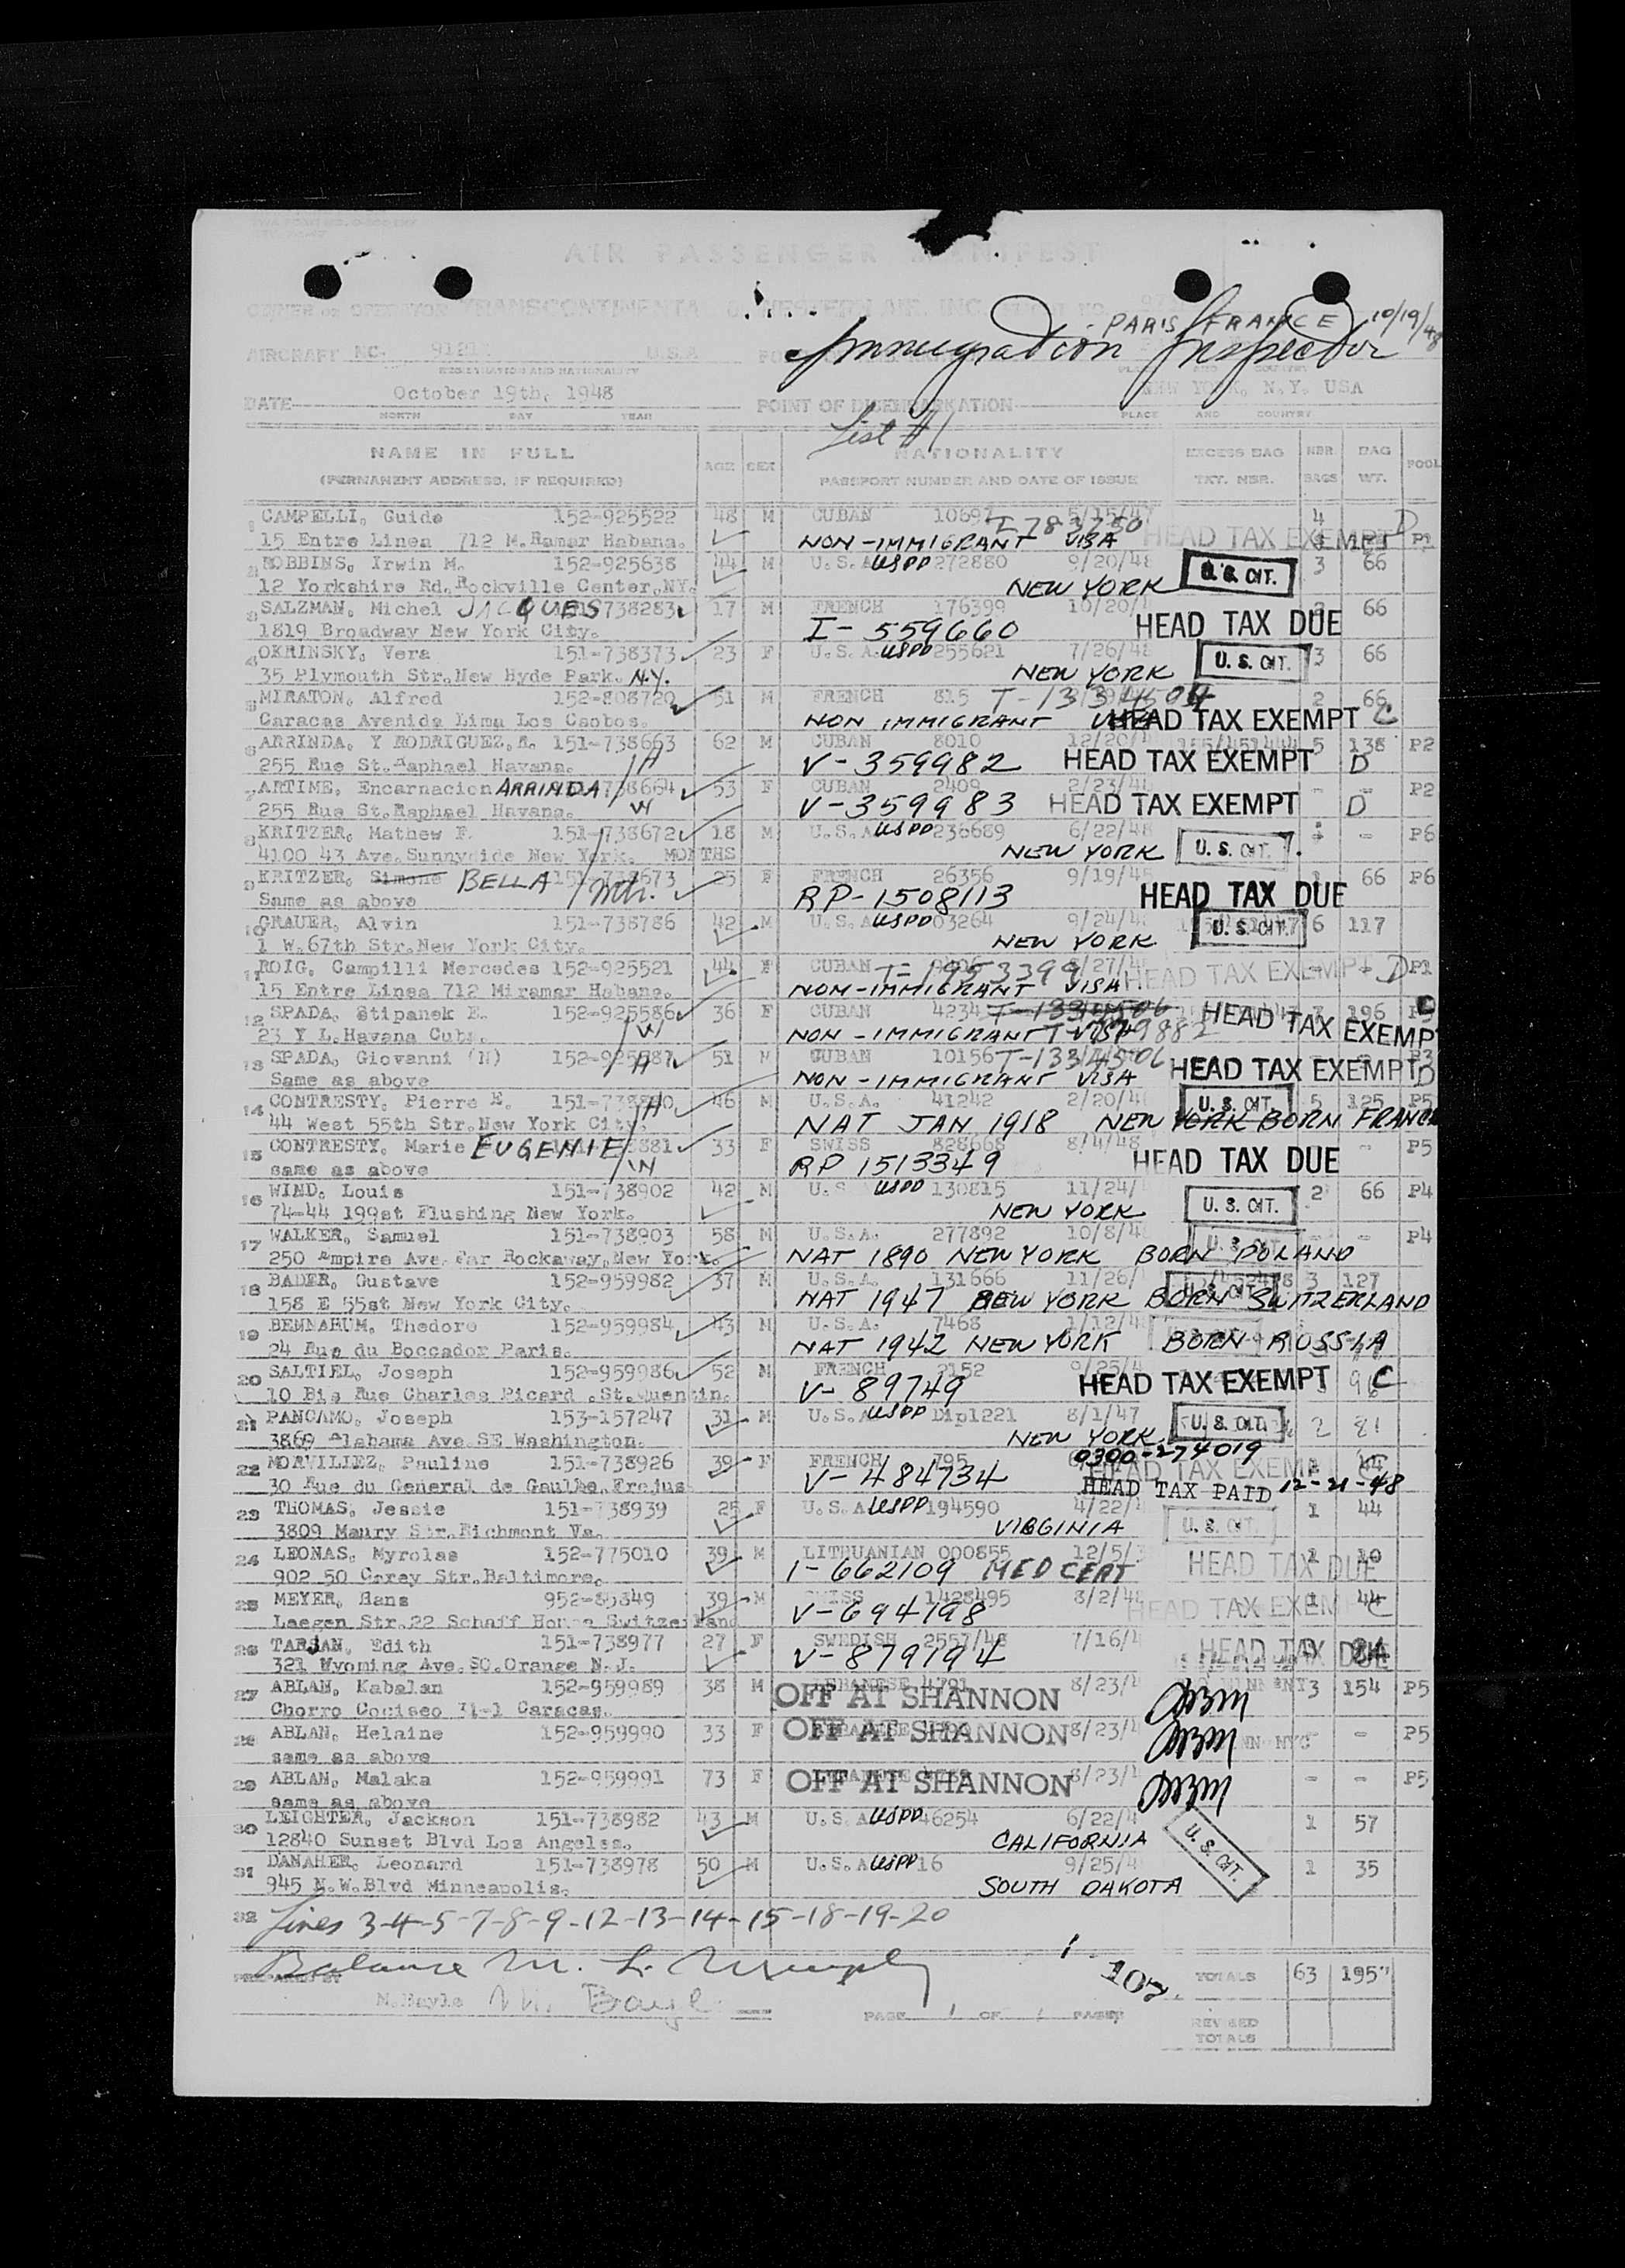 AIR PASSENGER MANIFEST
OWNER OR OPERATOR TRANSCONTINENTAL & WESTERN AIR, INC.
PARIS FRANCE 10/19/48
Immigration Inspector
AIRCRAFT NO. U.S.A
REGISTRATION AND NATIONALITY PLACE AND COUNTRY
October 19th, 1948 NEW YORK, N.Y. USA
DATE POINT OF DISEMBARKATION
MONTH DAY YEAR PLACE AND COUNTRY
List #1
NAME IN FULL AGE SEX NATIONALITY EXCESS BAG NBR BAG POOL
(PERMANENT ADDRESS, IF REQUIRED) PASSPORT NUMBER AND DATE OF ISSUE TKT. NBR. BAGS WT.
1 CAMPELLI, Guido 152-925522 48 M CUBAN 10697 5/15/47 4
I 783750
15 Entre Linea 712 M.Ramar Habana. NON-IMMIGRANT VISA HEAD TAX EXEMPT D P1
2 ROBBINS, Irwin M. 152-925638 44 M U.S.A USPP 272880 9/20/48 U.S. CIT. 3 66
12 Yorkshire Rd.Rockville Center.NY. NEW YORK
3 SALZMAN, Michel JACQUES 738283 17 M FRENCH 176399 10/20/ 66
1819 Broadway New York City. I-559660 HEAD TAX DUE
4 OKRINSKY, Vera 151-738373 23 F U.S.A. USPP 255621 7/26/48 U.S. CIT. 3 66
35 Plymouth Str.New Hyde Park. N.Y. NEW YORK
5 MIRATON, Alfred 152-808720 51 M FRENCH 815 T-1334504 2 66
Caracas Avenida Lima Los Caobos. NON IMMIGRANT VISA HEAD TAX EXEMPT C
6 ARRINDA, Y RODRIGUEZ,R. 151-738663 62 M CUBAN 8010 12/20/ 5 138 P2
255 Rue St.Raphael Havana. H V-359982 HEAD TAX EXEMPT D
7 ARTIME, Encarnacion ARRINDA 738664 53 F CUBAN 2409 2/23/48 - - P2
255 Rue St.Raphael Havana. W V-359983 HEAD TAX EXEMPT D
8 KRITZER, Mathew F. 151-738672 18 M U.S.A USPP 236689 6/22/48 - P6
4100 43 Ave.Sunnyside New York. MONTHS NEW YORK U.S. CIT.
9 KRITZER, Simone BELLA 151-738673 25 F FRENCH 26356 9/19/48 66 P6
Same as above Mth. RP-1508113 HEAD TAX DUE
10 GRAUER, Alvin 151-738786 42 M U.S.A USPP 03264 9/24/4 U.S. CIT. 6 117
1 W.67th Str.New York City. NEW YORK
11 ROIG, Campilli Mercedes 152-925521 44 F CUBAN T-1953399 /27/4 HEAD TAX EXEMPT D P1
15 Entre Linea 712 Miramar Habana. NON-IMMIGRANT VISA
12 SPADA, Stipanek E. 152-925586 36 F CUBAN 4234 T-1334506 7 196
23 Y L.Havana Cuba. W NON-IMMIGRANT VISA HEAD TAX EXEMP
13 SPADA, Giovanni (N) 152-925587 51 M CUBAN 10156 T-1334506 P3
Same as above H NON-IMMIGRANT VISA HEAD TAX EXEMPT D
14 CONTRESTY, Pierre E. 151-738880 46 M U.S.A. 41242 2/20/4 U.S. CIT. 5 125 P5
44 West 55th Str.New York City. H NAT JAN 1918 NEW YORK BORN FRANCE
15 CONTRESTY, Marie EUGENIE 881 33 F SWISS 828668 8/4/48 - P5
same as above W RP 1513349 HEAD TAX DUE
16 WIND, Louis 151-738902 42 M U.S USPP 130815 11/24/ 2 66 P4
74-44 199st Flushing New York. NEW YORK U.S. CIT.
17 WALKER, Samuel 151-738903 58 M U.S.A. 277892 10/8/4 U.S. CIT. - - P4
250 Empire Ave.Far Rockaway,New York. NAT 1890 NEW YORK BORN POLAND
18 BADER, Gustave 152-959982 37 M U.S.A. 131666 11/26/ 3 127
158 E 55st New York City. NAT 1947 NEW YORK BORN SWITZERLAND
19 BENNAHUM, Thedore 152-959984 43 M U.S.A. 7468 1/12/4
24 Rue du Boccador Paris. NAT 1942 NEW YORK BORN RUSSIA
20 SALTIEL, Joseph 152-959986 52 M FRENCH 2152 9/25/4
10 Bis Rue Charles Picard .St.Quentin. V-89749 HEAD TAX EXEMPT C
21 PANCAMO, Joseph 153-157247 31 M U.S.A USPP Dipl221 8/1/47 U.S. CIT. 2 81
3869 Alabama Ave SE Washington. NEW YORK
22 MORVILLIEZ, Pauline 151-738926 39 F FRENCH 795 0300-274019
30 Rue du General de Gaulle.Frejus V-484734 HEAD TAX EXEMP HEAD TAX PAID 12-21-48
23 THOMAS, Jessie 151-738939 25 F U.S.A USPP 194590 4/22/4 1 44
3809 Maury Str.Richmont Va. VIRGINIA U.S. CIT.
24 LEONAS, Myrolas 152-775010 39 M LITHUANIAN 000855 12/5/3 1 10
902 50 Carey Str.Baltimore. I-662109 MED CERT HEAD TAX DUE
25 MEYER, Hans 952-85849 39 M SWISS 1428495 8/2/48 1 44
Laegen Str.22 Schaff House Switzerland V-694198 HEAD TAX EXEM C
26 TARJAN, Edith 151-738977 27 F SWEDISH 2557/48 7/16/4
321 Wyoming Ave.SO.Orange N.J. V-879194 HEAD TAX DUE
27 ABLAN, Kabalan 152-959989 38 M LEBANESE 4791 8/23/4 3 154 P5
Chorro Cociseo 31-1 Caracas. OFF AT SHANNON
28 ABLAN, Helaine 152-959990 33 F OFF AT SHANNON 8/23/4 - - P5
same as above
29 ABLAN, Malaka 152-959991 73 F OFF AT SHANNON 8/23/4 - - P5
same as above
30 LEIGHTER, Jackson 151-738982 43 M U.S.A USPP 46254 6/22/4 1 57
12840 Sunset Blvd Los Angeles. CALIFORNIA U.S. CIT.
31 DANAHER, Leonard 151-738978 50 M U.S.A USPP 16 9/25/4 1 35
945 N.W.Blvd Minneapolis. SOUTH DAKOTA
32 Lines 3-4-5-7-8-9-12-13-14-15-18-19-20
Balance M. L. Murphy
PREPARED BY 107 TOTALS 63 195
N.Bayle
PAGE 1 OF 1 PAGES
REVISED TOTALS